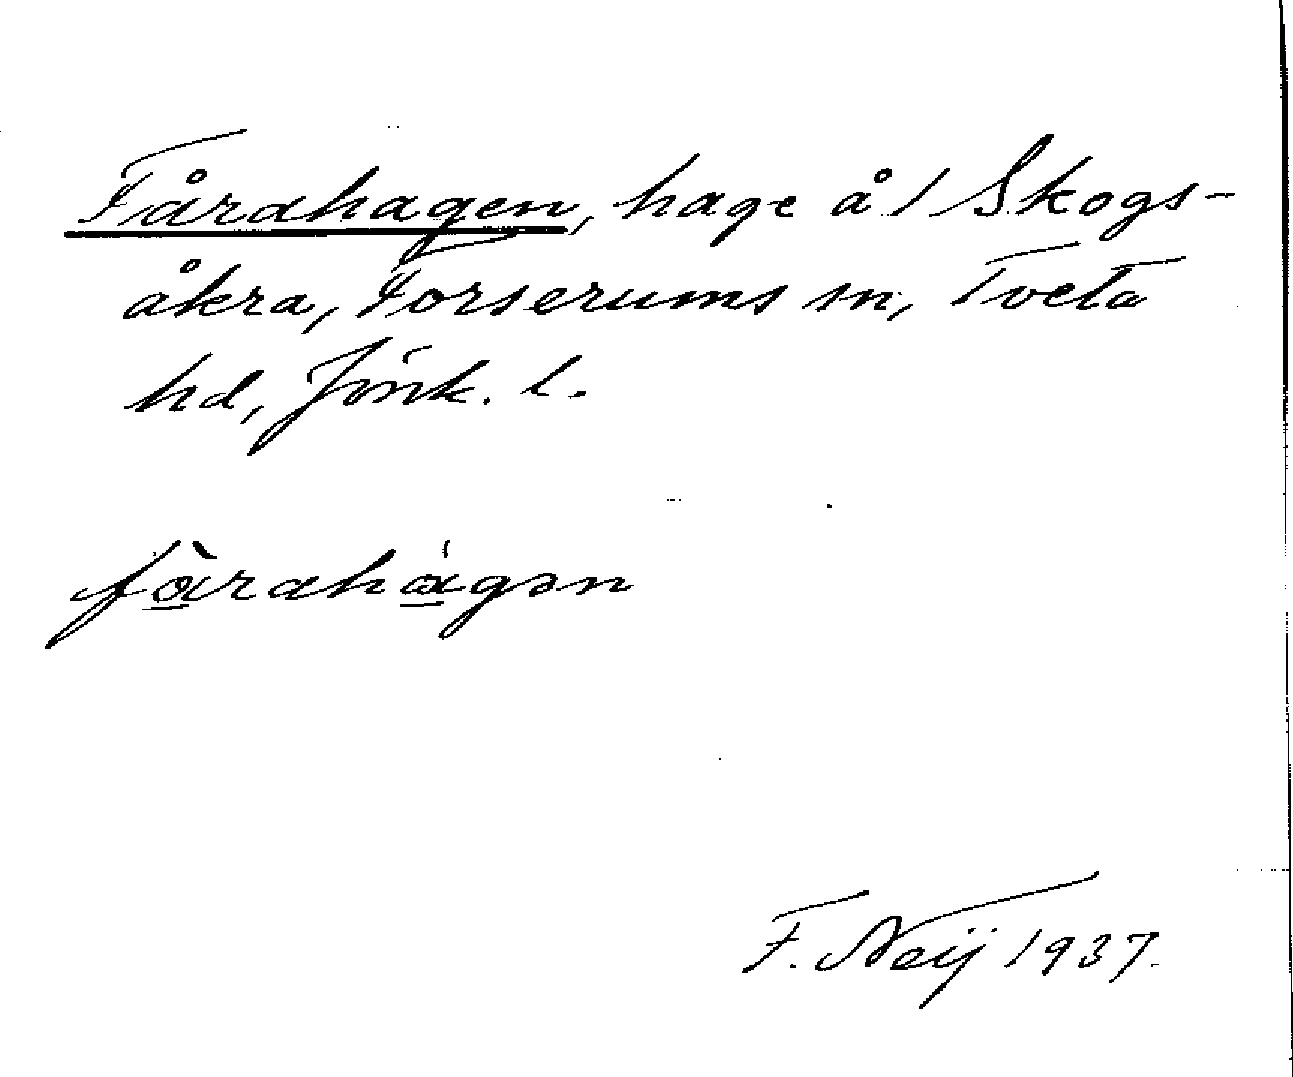 Fårahagen, hage å 1 Skogs-
åkra, Forserums sn, Tveta
hd, Jönk. l.
fàrahágən
F. Neij 1937.